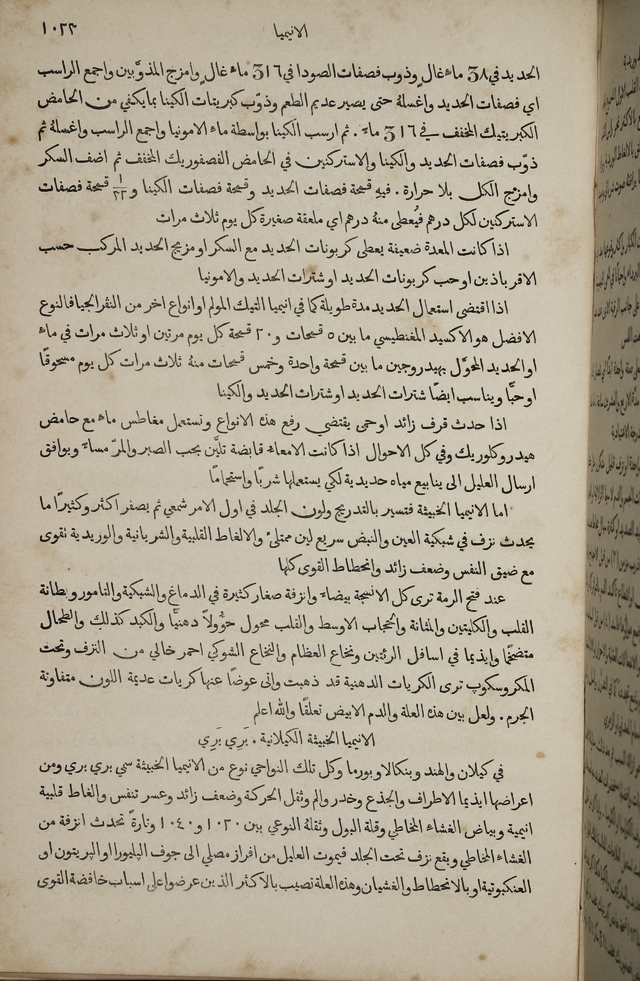 الانيميا
١٠٢٣
الحديد في ʒ8 ماء غالٍ وذوب فصفات الصودا في ʒ16 ماء غالٍ وامزج المذوَّبين واجمع الراسب
اي فصفات الحديد واغسلهُ حتى يصير عديم الطعم وذوّب كبريتات الكينا بما يكفي من الحامض
الكبريتيك المخفف في ʒ16 ماء. ثم ارسب الكينا بواسطة ماء الامونيا واجمع الراسب واغسلهُ ثم
ذوّب فصفات الحديد والكينا والاستركنين في الحامض الفصفوريك المخفف ثم اضف السكر
وامزج الكل بلا حرارة. فيهِ قمحة فصفات الحديد وقمحة فصفات الكينا و١/٣٢ قمحة فصفات
الاستركنين لكل درهم فيُعطى منهُ درهم اي ملعقة صغيرة كل يوم ثلاث مرات
اذا كانت المعدة ضعيفة يعطى كربونات الحديد مع السكر او مزيج الحديد المركب حسب
الاقرباذين او حب كربونات الحديد او شترات الحديد والامونيا
اذا اقتضى استعمال الحديد مدة طويلة كما في انيميا التيك المولم او انواع اخر من النفرالجيا فالنوع
الافضل هو الاكسيد المغنطيسي ما بين ٥ قمحات و٢٠ قمحة كل يوم مرتين او ثلاث مرات في ماء
او الحديد المحوَّل بهيدروجين ما بين قمحة واحدة وخمس قمحات منهُ ثلاث مرات كل يوم مسحوقًا
او حبًّا ويناسب ايضًا شترات الحديد او شترات الحديد والكينا
اذا حدث قرف زائد او حمى يقتضي رفع هذه الانواع وتستعمل مغاطس ماء مع حامض
هيدروكلوريك وفي كل الاحوال اذا كانت الامعاء قابضة تليَّن بحب الصبر والمرّ مساء ويوافق
ارسال العليل الى ينابيع مياه حديدية لكي يستعملها شربًا واستحمامًا
اما الانيميا الخبيثة فتسير بالتدريج ولون الجلد في اول الامر شمعي ثم يصفر اكثر وكثيرًا ما
يحدث نزف في شبكية العين والنبض سريع لين ممتلئ والالغاط القلبية والشريانية والوريدية تقوى
مع ضيق النفس وضعف زائد وانحطاط القوى كلها
عند فتح الرمة ترى كل الانسجة بيضاء وانزفة صغار كثيرة في الدماغ والشبكية والتامور وبطانة
القلب والكليتين والمثانة والحجاب الاوسط والقلب محول حؤولاً دهنيًا والكبد كذلك والطحال
متضخمًا وايذيما في اسافل الرئتين ونخاع العظام والنخاع الشوكي احمر خالي من النزف وتحت
المكروسكوب ترى الكريات الدهنية قد ذهبت واتى عوضًا عنها كريات عديمة اللون متفاوتة
الجرم. ولعل بين هذه العلة والدم الابيض تعلقًا والله اعلم
الانيميا الخبيثة الكيلانية. بَرِي بَرِي
في كيلان والهند وبنكالا وبورما وكل تلك النواحي نوع من الانيميا الخبيثة سمي بري بري ومن
اعراضها ايذيما الاطراف والجذع وخدر والم وثقل الحركة وضعف زائد وعسر تنفس والغاط قلبية
انيمية وبياض الغشاء المخاطي وقلة البول وثقلهُ النوعي بين ١٠٢٠ و١٠٤٠ وتارةً تحدث انزفة من
الغشاء المخاطي ويقع نزف تحت الجلد فيموت العليل من افراز مصلي الى جوف البليورا او البريتون او
العنكبوتية او بالانحطاط والغشيان وهذه العلة تصيب بالاكثر الذين عرضوا على اسباب خافضة القوى